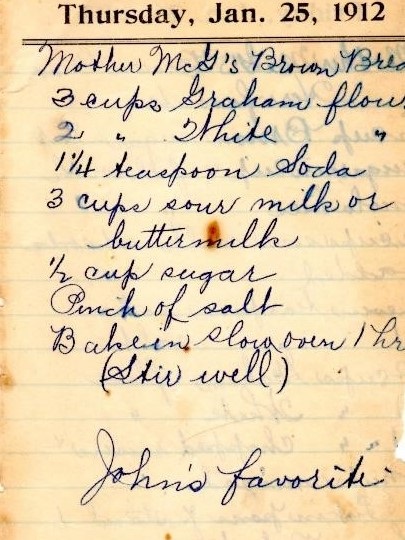 Thursday, Jan. 25, 1912
Mother McG's Brown Brea
3 cups Graham flour
2 " White "
1 1/4 teaspoon Soda
3 cups sour milk or
buttermilk
1/2 cup sugar
Pinch of salt
Bake in slow oven 1 hr
(Stir well)
John's favorite